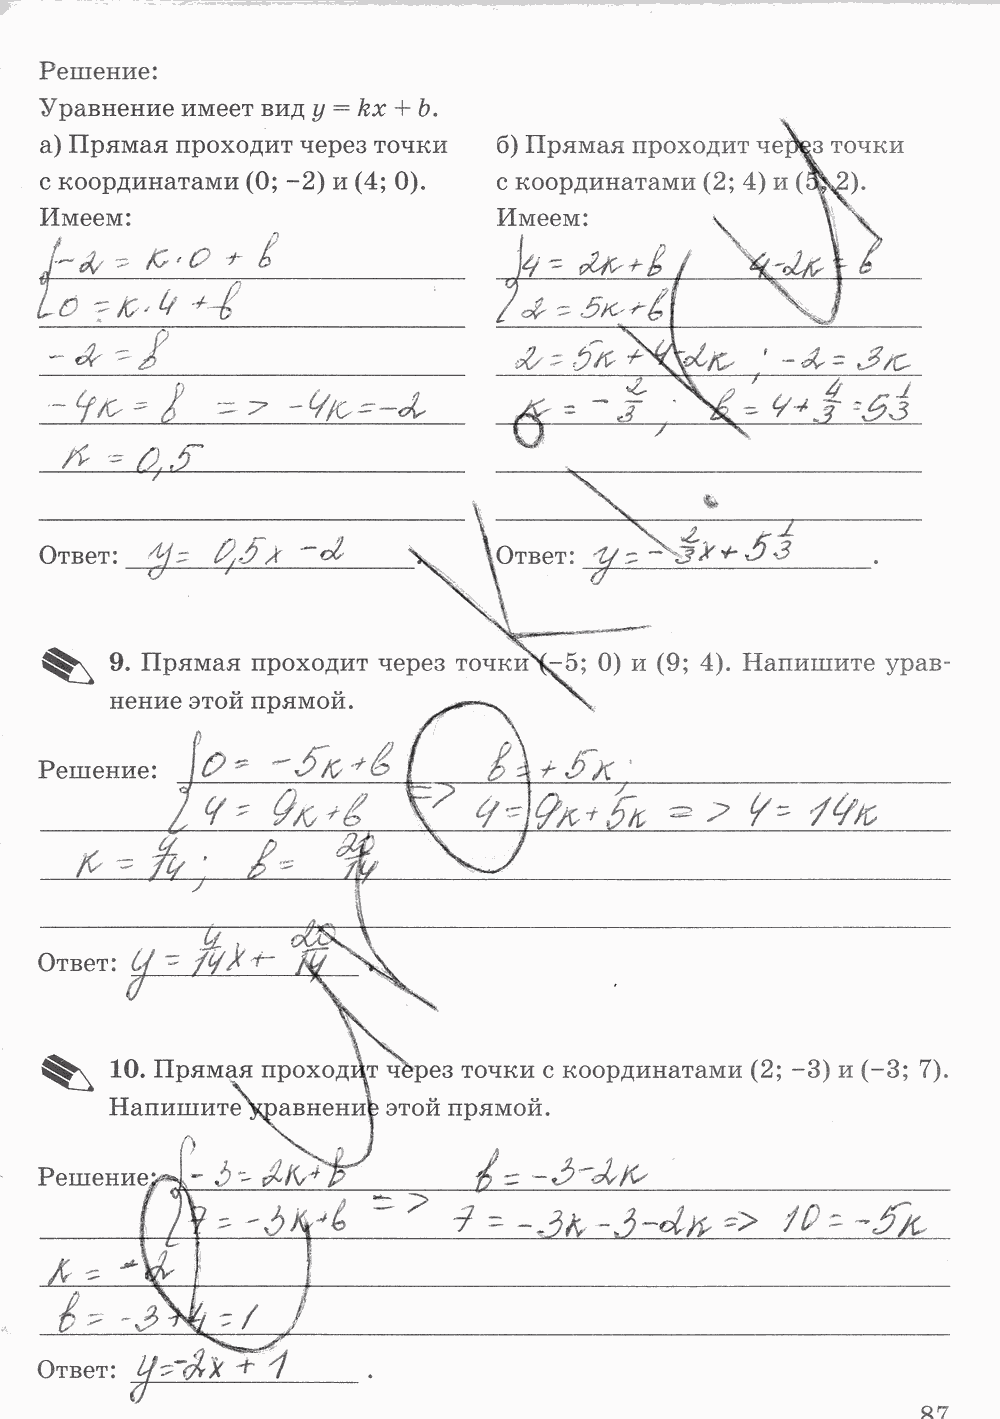 Решение:
Уравнение имеет вид y = kx + b.
а) Прямая проходит через точки
с координатами (0; −2) и (4; 0).
Имеем:
-2 = к·0 + b
0 = к·4 + b
-2 = b
-4к = b => -4к = -2
к = 0,5
Ответ: y = 0,5x - 2.
б) Прямая проходит через точки
с координатами (2; 4) и (5; 2).
Имеем:
4 = 2к + b 4-2к = b
2 = 5к + b
2 = 5к + 4-2к ; -2 = 3к
к = - 2/3 ; b = 4 + 4/3 = 5 1/3
Ответ: y = - 2/3 x + 5 1/3.
9. Прямая проходит через точки (−5; 0) и (9; 4). Напишите урав-
нение этой прямой.
Решение: 0 = -5к + b b = +5к;
4 = 9к + b => 4 = 9к + 5к => 4 = 14к
к = 4/14 ; b = 20/14
Ответ: y = 4/14 x + 20/14.
10. Прямая проходит через точки с координатами (2; −3) и (−3; 7).
Напишите уравнение этой прямой.
Решение: -3 = 2к + b b = -3-2к
7 = -3к + b => 7 = -3к - 3 - 2к => 10 = -5к
к = -2
b = -3 + 4 = 1
Ответ: y = -2x + 1.
87